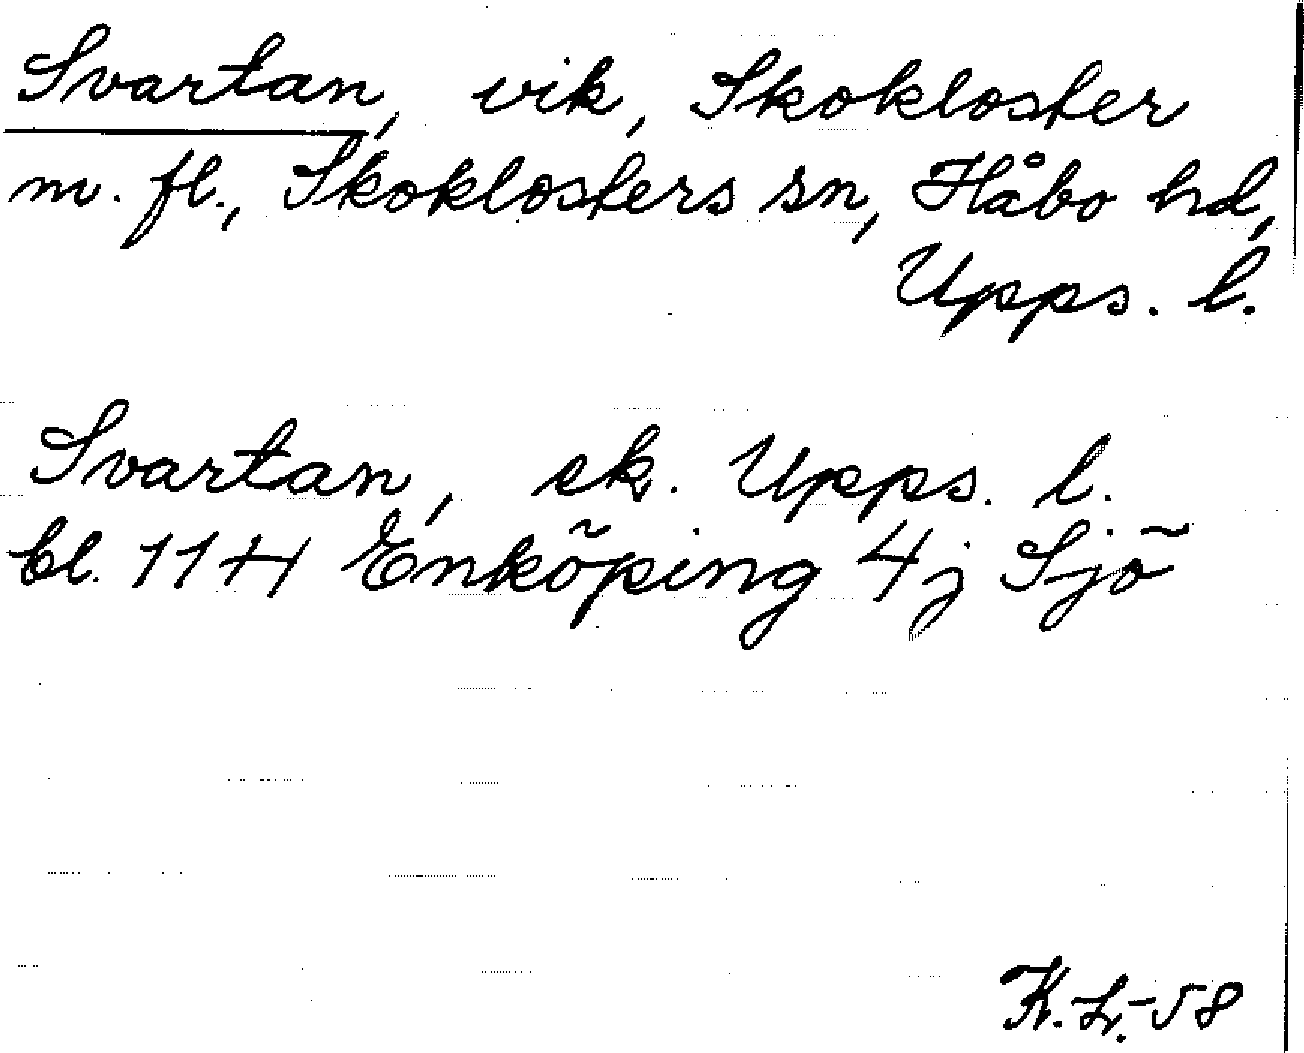 Svartan, vik, Skokloster
m. fl., Skoklosters sn, Håbo hd,
Upps. l.
Svartan, ek. Upps. l.
bl. 11 H Enköping 4j Sjö
K.L.-58